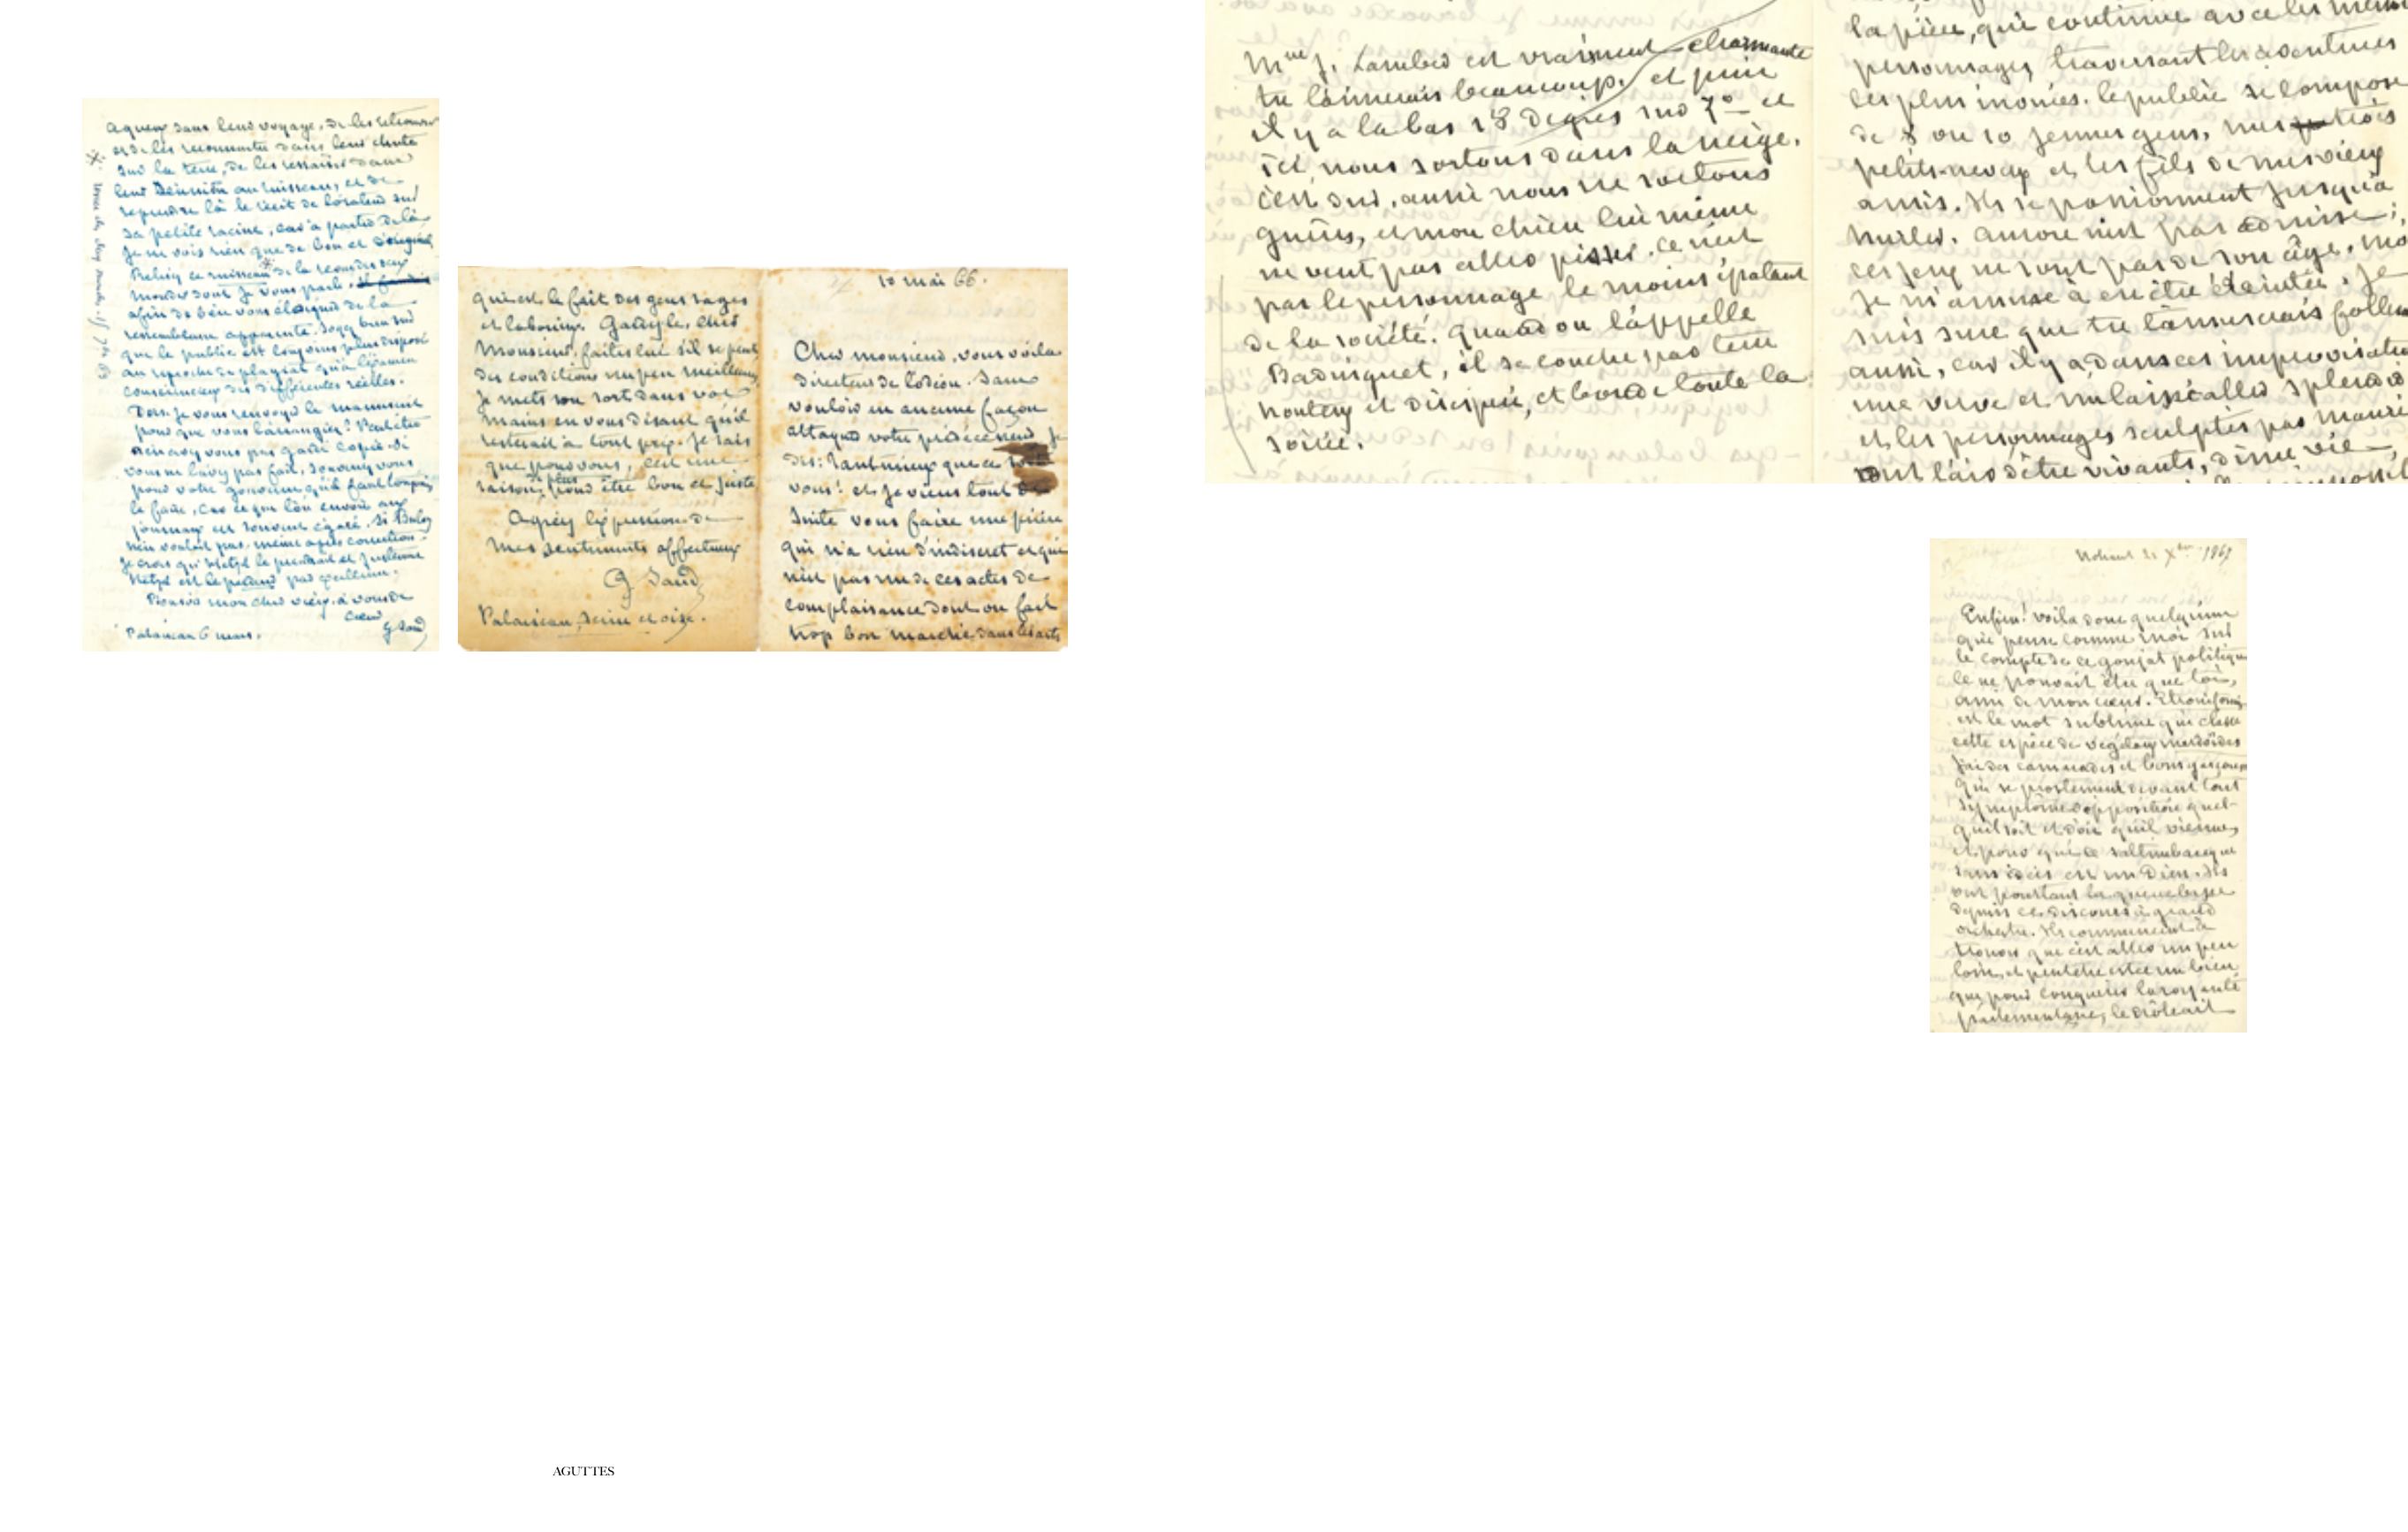 aguerz dans leur voyage, de les retrouver
et de les reconnaitre dans leur chute
sur la terre, de les ressaisir dans
leur Réunion au ruisseau, et de
reprendre là le récit de l'orateur sur
sa petite racine, car à partir de là
je ne vois rien que de bon et d'original
Relisez ce ruisseau de la
mondes dont je vous parle,
afin de bien vous éloigner de la
ressemblance apparente. Soyez bien sur
que le public est toujours plus disposé
au reproche de plagiat qu'à l'examen
consciencieux des différences réelles.
Dois-je vous renvoyer le manuscrit
pour que vous l'arrangiez? Peut être
n'en avez vous pas gardé copie. Si
vous ne l'avez pas fait, souvenez vous
pour votre gouverne qu'il faut toujours
le faire, car ce que l'on envoie aux
journaux est souvent égaré. Si Buloz
n'en voulait pas, même après correction
je crois qu'Hetzel le prendrait et justement
Hetzel est le par excellence.
Bonsoir mon cher vieux. à vous de
coeur
G Sand
Palaiseau 6 mars.
qui est le fait des gens sages
et laborieux. Gardez le, cher
Monsieur, faites lui s'il se peut
des conditions un peu meilleures,
je mets son sort dans vos
mains en vous disant qu'il
resterait à tout prix. Je sais
que pour vous, c'est une
raison de plus pour être bon et juste
Agréez l'expression de
mes sentiments affectueux
G Sand
Palaiseau, Seine et oise.
10 mai 66.
Cher monsieur, vous voila
directeur de l'odéon. Sans
vouloir en aucune façon
attaquer votre prédécesseur je
dis: tant mieux que ce soit
vous! et je viens tout de
suite vous faire une prière
qui n'a rien d'indiscret et qui
n'est pas un de ces actes de
complaisance dont on fait
trop bon marché dans les arts
Mme J. Lambert est vraiment charmante
tu l'aimerais beaucoup. et puis
il y a la bas 18 degrés sur 7° et
ici, nous sortons dans la neige.
c'est dur, aussi nous ne sortons
guères, et mon chien lui même
ne veut pas aller pisser. Ce n'est
pas le personnage le moins épatant
de la société. Quand on l'appelle
Badinguet, il se couche par terre
honteux et désespéré, et boude toute la
soirée.
la pièce, qui continue avec les mêmes
personnages, traversant les aventures
les plus inouies. le public se compose
de 8 ou 10 jeunes gens, mes trois
petits-neveux et les fils de mes vieux
amis. Ils se passionnent jusqu'à
hurler. Aurore n'est pas admise;
ces jeux ne sont pas de son âge.
Je m'amuse à en être éreintée. Je
suis sure que tu t'amuserais
aussi, car il y a dans ces
une verve et un laisser aller
et les personnages sculptés par
ont l'air d'être vivants, d'une vie
Nohant 21 Xbre 1867
Enfin! voila donc quelqu'un
qui pense comme moi sur
le compte de ce goujat politique
Ce ne pouvait être que toi,
ami de mon coeur. Etroniforme
est le mot sublime qui classe
cette espèce de végétaux merdoïdes
J'ai des camarades et bons garçons
qui se prosternent devant tout
symptôme d'opposition quel
qu'il soit et d'où qu'il vienne,
et pour qui ce saltimbanque
sans idées est un Dieu. Ils
ont pourtant la queue basse
depuis ce discours à grand
orchestre. Ils commencent à
trouver que c'est aller un peu
loin, et peut être est ce un bien
que pour conquérir la royauté
parlementaire, le drôle ait
AGUTTES